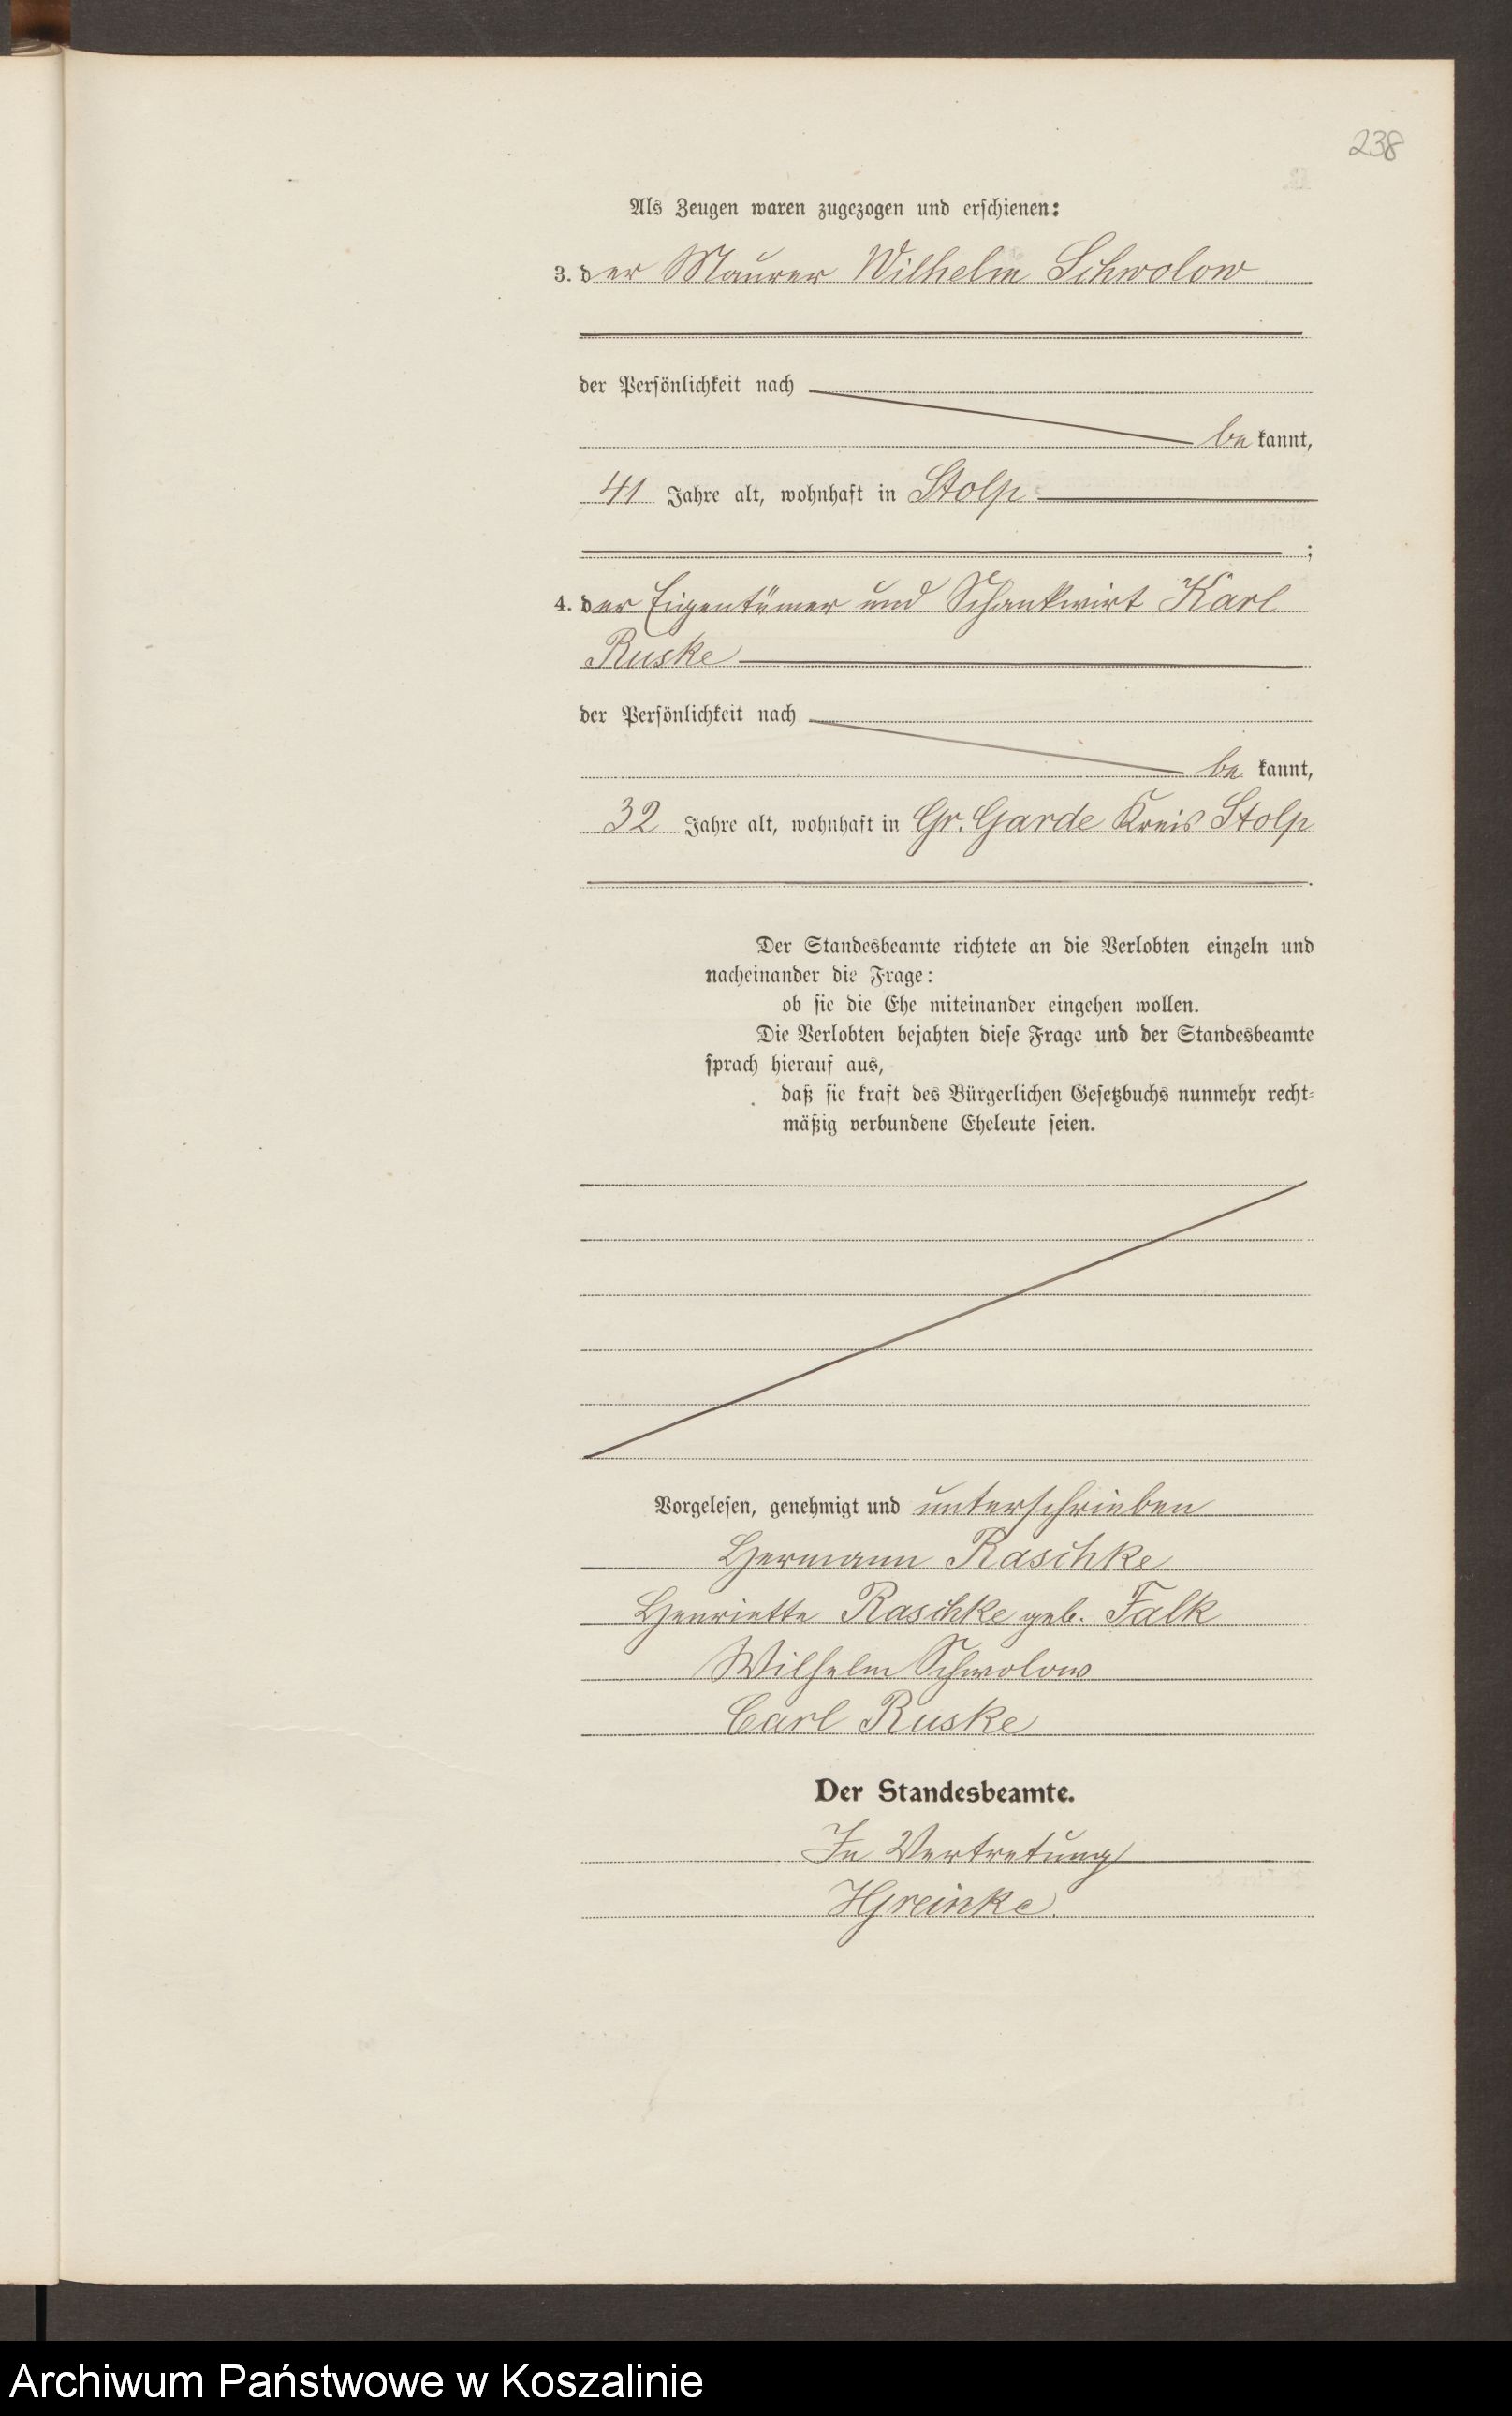 238
Als Zeugen waren zugezogen und erschienen:
3. der Maurer Wilhelm Schwolow
der Persönlichkeit nach
bekannt,
41 Jahre alt, wohnhaft in Stolp
;
4. der Eigentümer und Schankwirt Karl
Ruske
der Persönlichkeit nach
be kannt,
32 Jahre alt, wohnhaft in Gr. Garde Kreis Stolp
.
Der Standesbeamte richtete an die Verlobten einzeln und
nacheinander die Frage:
ob sie die Ehe miteinander eingehen wollen.
Die Verlobten bejahten diese Frage und der Standesbeamte
sprach hierauf aus,
daß sie kraft des Bürgerlichen Gesetzbuchs nunmehr recht-
mäßig verbundene Eheleute seien.
Vorgelesen, genehmigt und unterschrieben
Hermann Raschke
Henriette Raschke geb. Falk
Wilhelm Schwolow
Carl Ruske
Der Standesbeamte.
In Vertretung
Archiwum Państwowe w Koszalinie